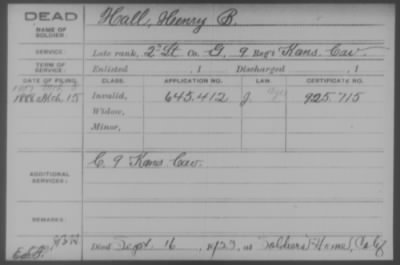 DEAD
NAME OF SOLDIER:
Hall, Henry B.
SERVICE:
Late rank, 2d Lt Co. G, 9 Reg't Kans. Cav.
TERM OF SERVICE:
Enlisted , 1 Discharged , 1
DATE OF FILING. CLASS. APPLICATION NO. LAW. CERTIFICATE NO.
1888 Mch 15 Invalid, 645.412 J 925.715
Widow,
Minor,
ADDITIONAL SERVICES:
C. 9 Kans Cav.
REMARKS:
Died Sept. 16, 1923, at Soldiers Home, Calif